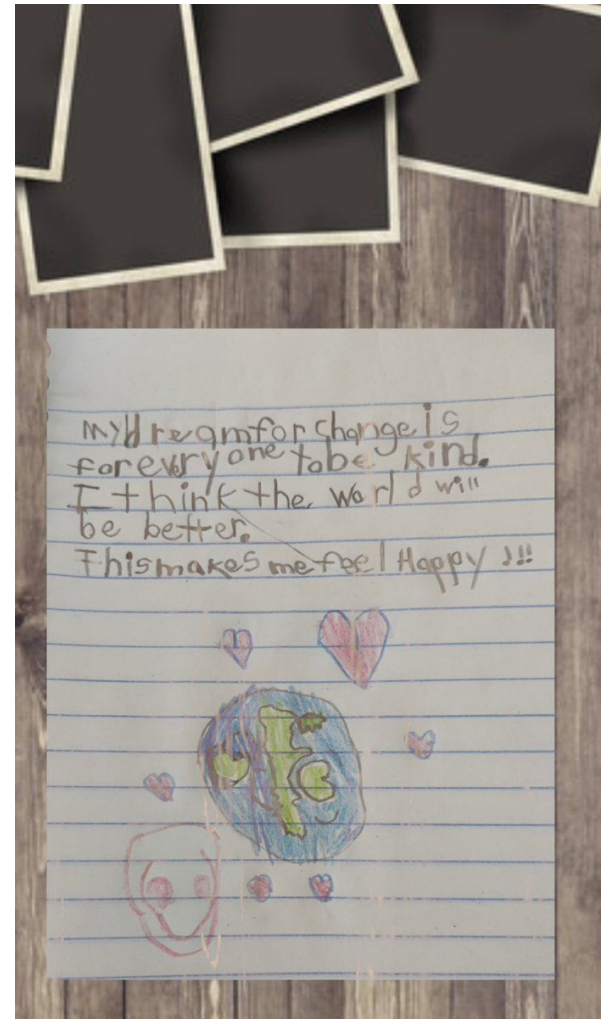 My dream for change is
for everyone to be kind.
I think the world will
be better.
This makes me feel Happy !!!